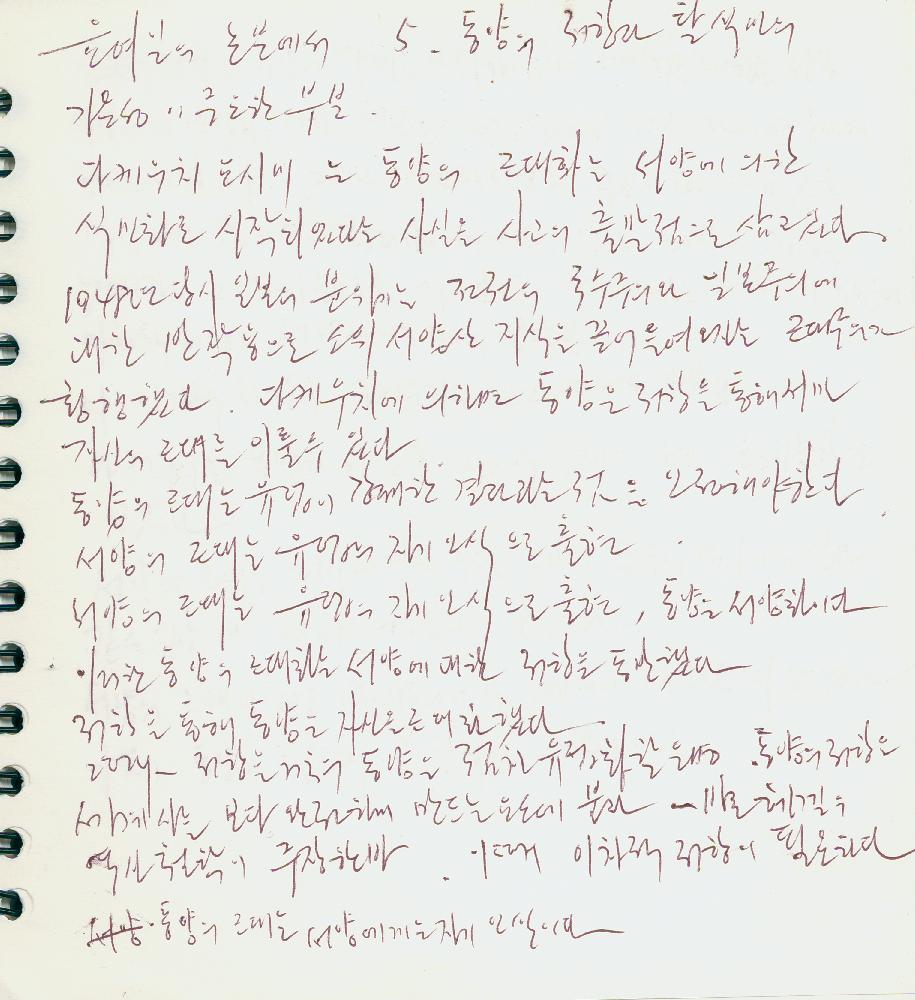 윤여일의 논문에서 5. 동양의 저항과 탈식민의
가능성 이 중요한 부분.
다케우치 요시미 는 동양의 근대화는 서양에 의한
식민화로 시작되었다는 사실을 사고의 출발점으로 삼고있다.
1948년 당시 일본의 분위기는 전전의 국수주의와 일본주의에
대한 반작용으로 소위 서양산 지식을 끌어들여오는 근대주의가
횡행했다. 다케우치에 의하면 동양은 저항을 통해서만
자신의 근대를 이룰수 있다
동양의 근대는 유럽이 강제한 결과라는 것을 인정해야한다.
서양의 근대는 유럽의 자기 인식 으로 출현.
서양의 근대는 유럽의 자기 인식 으로 출현, 동양은 서양화이다
이러한 동양의 근대화는 서양에 대한 저항을 동반했다
저항을 통해 동양은 자신을 근대화했다.
그러나 저항을 거쳐 동양은 점차 유럽화할 운명. 동양의 저항은
세계사를 보다 완전하게 만드는 요소에 불과 - 바로 헤겔의
역사철학이 주장한바. 이때 이차적 저항이 필요하다
서양 동양의 근대는 서양에게는 자기 인식이다